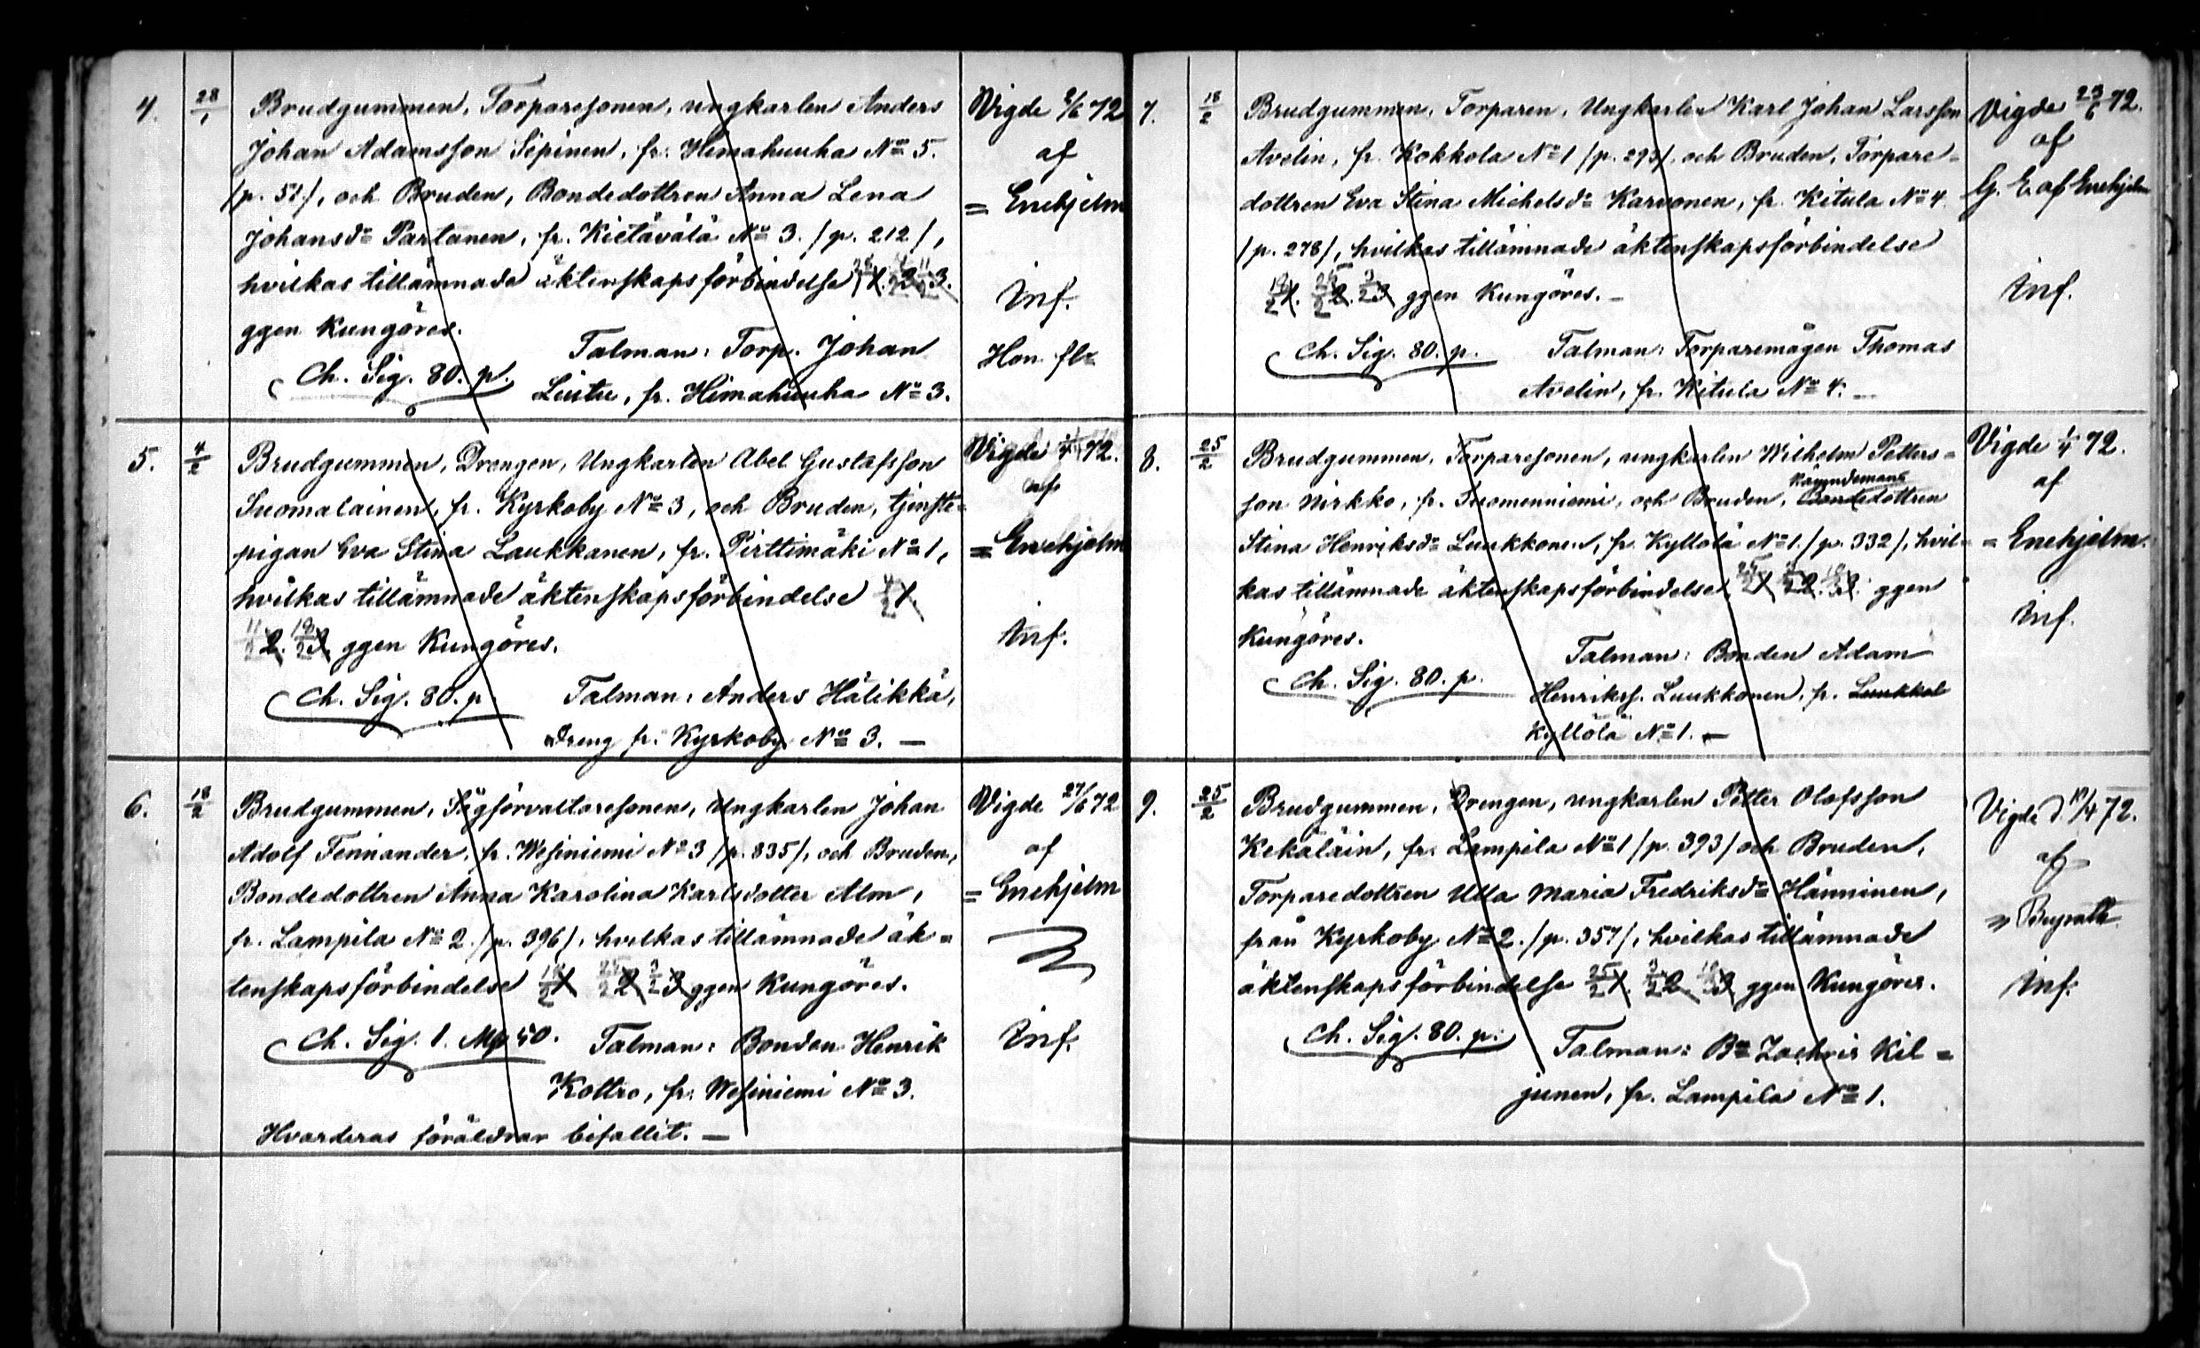 4. 28/1 Brudgummen, Torparesonen, ungkarlen Anders
Johan Adamsson Sepinen, fr. Himahuuha No 5.
/p. 51/, och Bruden, Bondedottren Anna Lena
Johansdr Partanen, fr. Kietävälä No 3. /p. 212/,
hvilkas tillämnade äktenskapsförbindelse 28/1 1. 4/2 2. 11/2 3.
ggen Kungöres.
Ch. Sig. 80. p. Talman: Torp. Johan
Liutu, fr. Himahuuha No 3.
Vigde 2/6 72
af
= Enehjelm
Inf.
Hon
5. 4/2 Brudgummen, Drengen, Ungkarlen Abel Gustafsson
Suomalainen, fr. Kyrkoby No 3, och Bruden, tjenste-
pigan Eva Stina Laukkanen, fr. Pirttimäki No 1,
hvilkas tillämnade äktenskapsförbindelse 4/2 1.
11/2 2. 18/2 3 ggen Kungöres.
Ch. Sig. 80. p. Talman: Anders Hälikkä,
dreng fr. Kyrkoby No 3. —
Vigde 72.
af
= Enehjelm
Inf.
6. 18/2 Brudgummen, Sågförvaltaresonen, Ungkarlen Johan
Adolf Tennander, fr. Wesiniemi No 3 /p. 835/, och Bruden,
Bondedottren Anna Karolina Karlsdotter Alm,
fr. Lampila No 2. /p. 396/, hvilkas tillämnade äk=
tenskapsförbindelse 18/2 1 25/2 2 3/3 3 ggen Kungöres.
Ch. Sig. 1. Mk 50. Talman: Bonden Henrik
Kottro, fr. Wesiniemi No 3.
Hvarderas föräldrar bifallit. —
Vigde 27/6 72
af
= Enehjelm
Inf.
7. 18/2 Brudgummen, Torparen, Ungkarlen Karl Johan Larsson
Avelin, fr. Kokkola No 1 /p. 293/, och Bruden, Torpare=
dottren Eva Stina Michelsdr Karvonen, fr. Kitula No 4
/p. 278/, hvilkas tillämnade äktenskapsförbindelse
18/2 1. 25/2 2. 3 ggen Kungöres. —
Ch. Sig. 80. p. Talman: Torparemågen Thomas
Avelin, fr. Kitula No 4. —
Vigde 23/6 72.
af
G. E. af Enehjelm
Inf.
8. 25/2 Brudgummen, Torparesonen, ungkarlen Wilhelm Petters=
son Nirkko, fr. Suomenniemi, och Bruden, Bondedottren
Stina Henriksdr Luukkonen, fr. Kyllölä No 1. /p. 332/, hvil=
kas tillämnade äktenskapsförbindelse 25/2 1 2. 3. ggen
Kungöres.
Ch. Sig. 80. p. Talman: Bonden Adam
Henrikss. Luukkonen, fr. Luukkol
Kyllölä No 1. —
Vigde 1/4 72.
af
= Enehjelm.
Inf.
9. 25/2 Brudgummen, Drengen, ungkarlen Petter Olofsson
Kekäläin, fr. Lampila No 1 /p. 393/ och Bruden,
Torparedottren Ulla Maria Fredriksdr Hänninen,
från Kyrkoby No 2. /p. 357/, hvilkas tillämnade
äktenskapsförbindelse 25/2 1. 2 3 ggen Kungöres.
Ch. Sig. 80. p. Talman: Bn Zachris Kil=
junen, fr. Lampila No 1.
Vigde d. 72.
af
Inf.